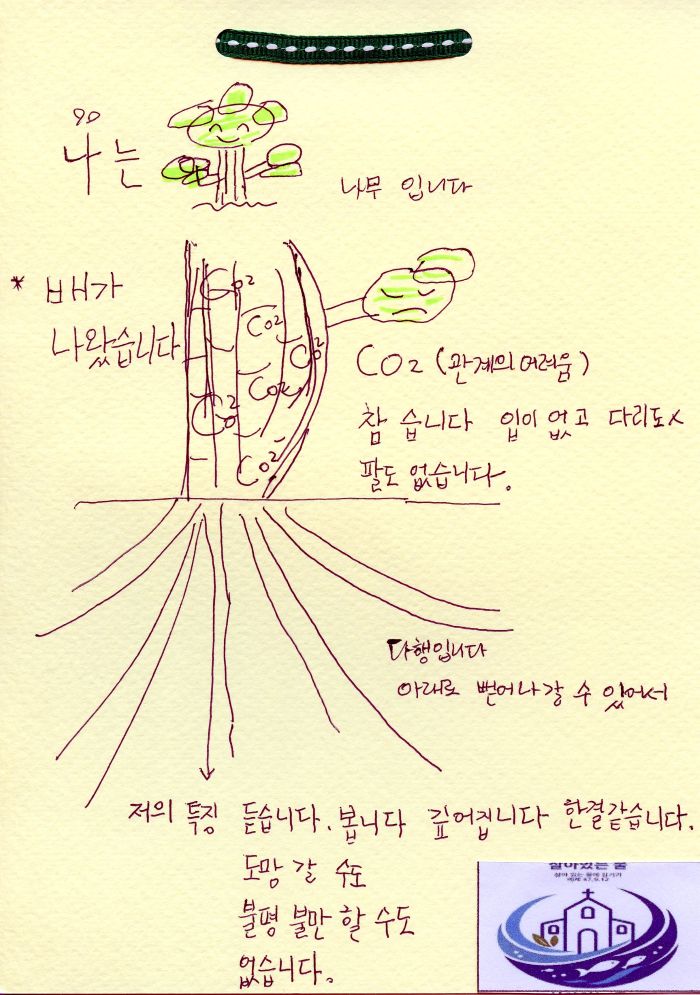 90
나는
나무 입니다
* 배가
나왔습니다
CO2
CO2
CO2
CO2
CO2
CO2
CO2 (관계의 어려움)
참습니다 입이 없고 다리도
팔도 없습니다.
다행입니다
아래로 뻗어나갈 수 있어서
저의 특징 듣습니다. 봅니다 깊어집니다 한결같습니다.
도망 갈 수도
불평 불만 할 수도
없습니다.
살아있는 물
에제 47,9.12